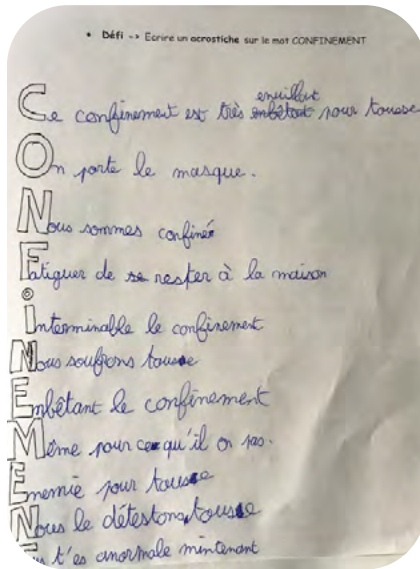 • Défi -> Ecrire un acrostiche sur le mot CONFINEMENT
enuillant
Ce confinement est très embêtant pour tousse
On porte le masque.
Nous sommes confiné
Fatiguer de se rester à la maison
Interminable le confinement
Nous soufrons tousse
Enbêtant le confinement
Même pour ce qu'il on pas.
Enemie pour tousse
Nous le détestons tousse
t'es anormale mintenant